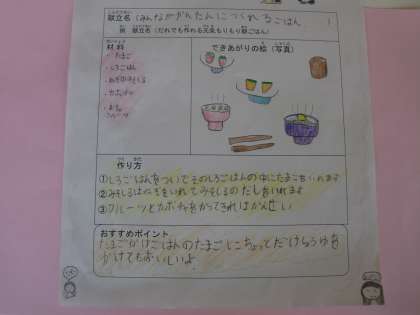 献立名（みんながかんたんにつくれるごはん　）
例　献立名（だれでも作れる元気もりもり朝ごはん）
材料
・たまご
・しろごはん
・みそしる
・カボチャ
・フルーツ
できあがりの絵（写真）
作り方
①しろごはんをついでそのしろごはんの中にたまごをいれます
②みそしるは をいれてみそしるのだしをいれます
③フルーツとカボチャをかってきればかんせい
おすすめポイント
たまごかけごはんのたまごにちょっとだけしょうゆを
かけてもおいしいよ